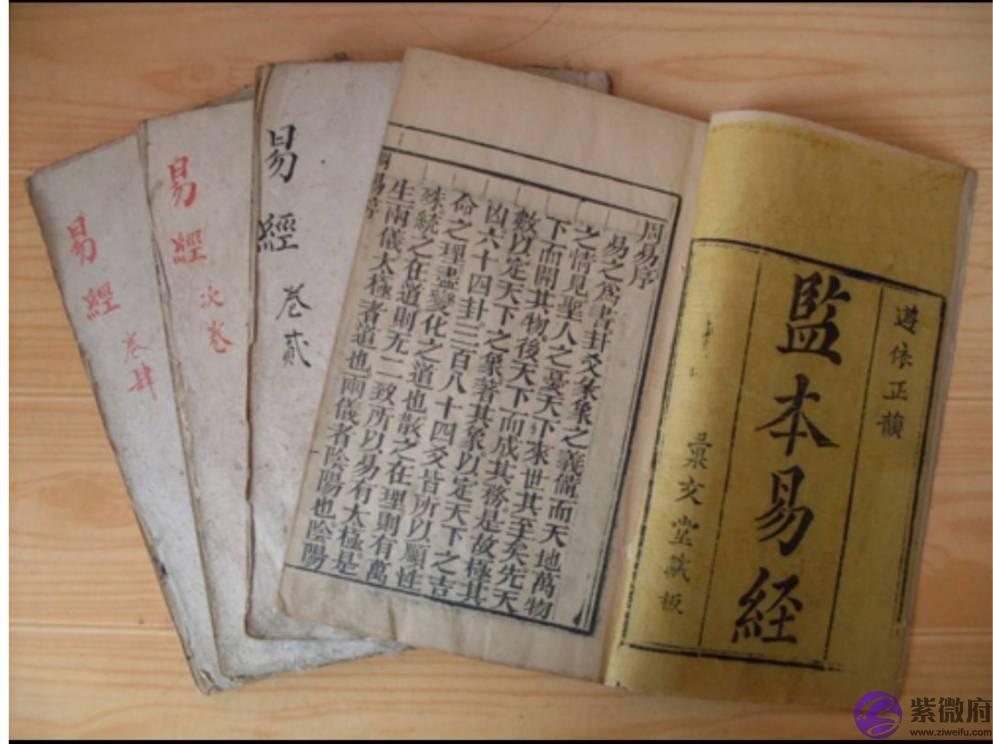 遵依正韻
監本易経
彙文堂藏板
周易序
易之爲書卦爻彖象之義備而天地萬物
之情見聖人之憂天下來世其至矣先天
下而開其物後天下而成其務是故極其
數以定天下之象著其象以定天下之吉
凶六十四卦三百八十四爻皆所以順性
命之理盡變化之道也散之在理則有萬
殊統之在道則无二致所以易有太極是
生兩儀太極者道也兩儀者陰陽也陰陽
易經 卷貳
易經 次卷
易經 卷肆
紫微府
www.ziweifu.com